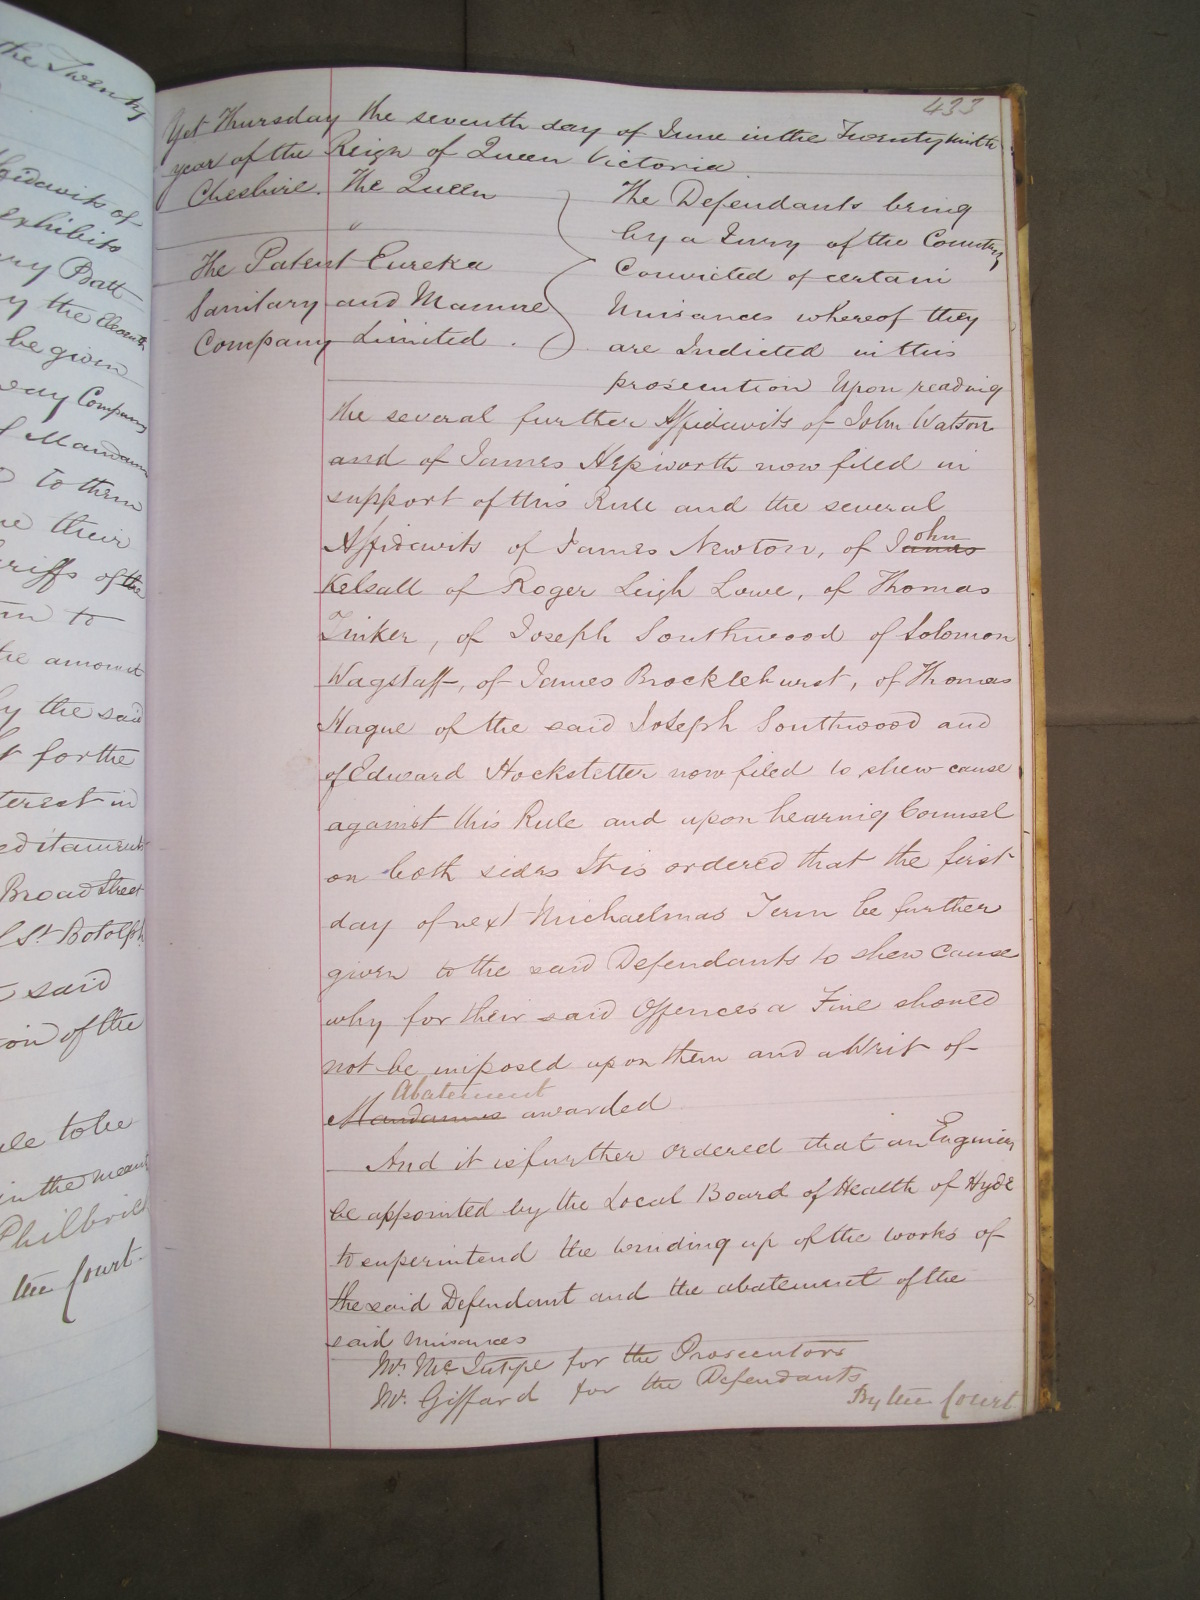 the Twenty
Affidavits of
exhibits
Batt
y the eleventh
be given
way Company
Mandamus
to them
their
riffs of the
to
the amount
by the said
for the
terest in
editaments
Broad Street
St Botolph
said
ion of the
ule to be
in the mean
Philbrick
the Court.
433
Yet Thursday the seventh day of June in the Twenty ninth
year of the Reign of Queen Victoria
Cheshire. The Queen
"
The Patent Eureka
Sanitary and Manure
Company Limited.
The Defendants being
by a Jury of the Country
Convicted of certain
Nuisances whereof they
are Indicted in this
prosecution Upon reading
the several further Affidavits of John Watson
and of James Hepworth now filed in
support of this Rule and the several
Affidavits of James Newton, of James ohn
Kelsall of Roger Leigh Lowe, of Thomas
Tinker, of Joseph Southwood of Solomon
Wagstaff, of James Brocklehurst, of Thomas
Hague of the said Joseph Southwood and
of Edward Hockstetter now filed to shew cause
against this Rule and upon hearing Counsel
on both sides It is ordered that the first
day of next Michaelmas Term be further
given to the said Defendants to shew cause
why for their said Offences a Fine should
not be imposed upon them and a Writ of
Abatement
Mandamus awarded
And it is further ordered that an Enquiry
be appointed by the Local Board of Health of Hyde
to superintend the winding up of the works of
the said Defendant and the abatement of the
said nuisances
Mr. McIntyre for the Prosecutors
Mr. Giffard for the Defendants
By the Court.